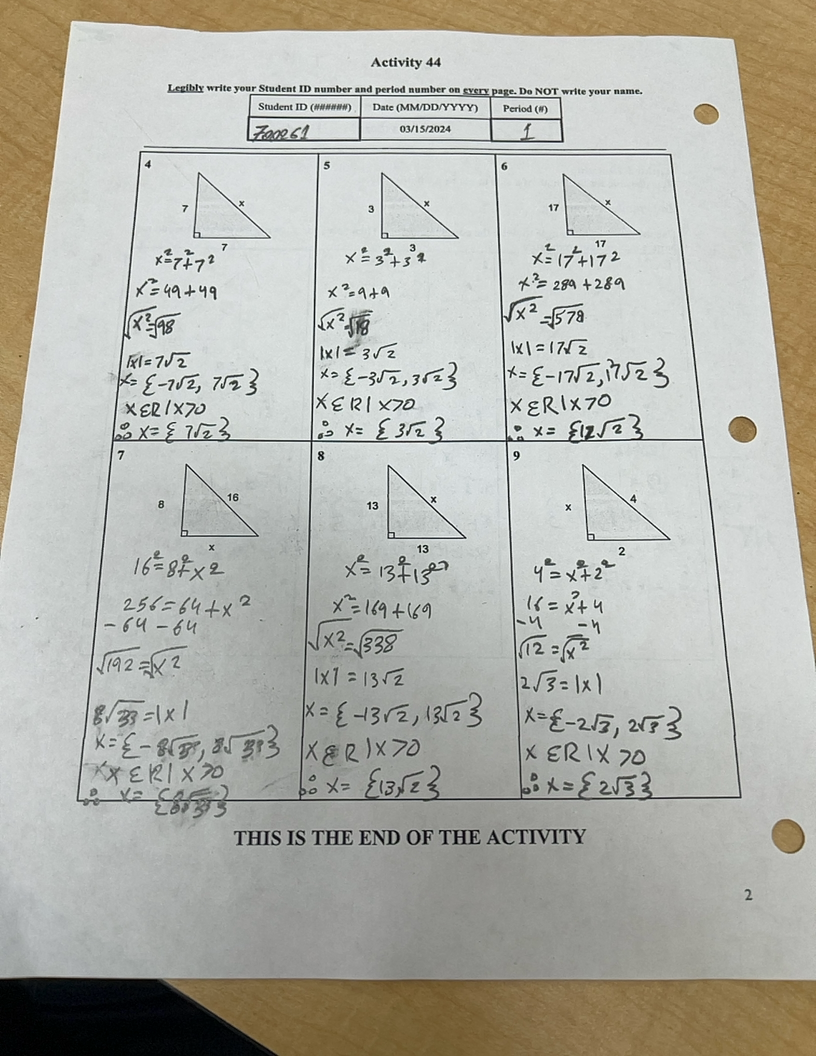 Activity 44
Legibly write your Student ID number and period number on every page. Do NOT write your name.
Student ID (######) Date (MM/DD/YYYY) Period (#)
03/15/2024 1
4
7 x
7
x²=7²+7²
x²=49+49
√x²=√98
|x|=7√2
x={-7√2, 7√2}
x ε R | x>0
∴ x={7√2}
5
3 x
3
x²=3²+3²
x²=9+9
√x²=√18
|x|=3√2
x={-3√2, 3√2}
x ε R | x>0
∴ x={3√2}
6
17 x
17
x²=17²+17²
x²=289+289
√x²=√578
|x|=17√2
x={-17√2, 17√2}
x ε R | x>0
∴ x=
7
8 16
x
16²=8²+x²
256=64+x²
-64 -64
√192=√x²
=|x|
x={-
x ε R | x>0
∴ x=
8
13 x
13
x²=13²+13²
x²=169+169
√x²=√338
|x|=13√2
x={-13√2, 13√2}
x ε R | x>0
∴ x={13√2}
9
x 4
2
4²=x²+2²
16=x²+4
-4 -4
√12=√x²
2√3=|x|
x={-2√3, 2√3}
x ε R | x>0
∴ x={2√3}
THIS IS THE END OF THE ACTIVITY
2